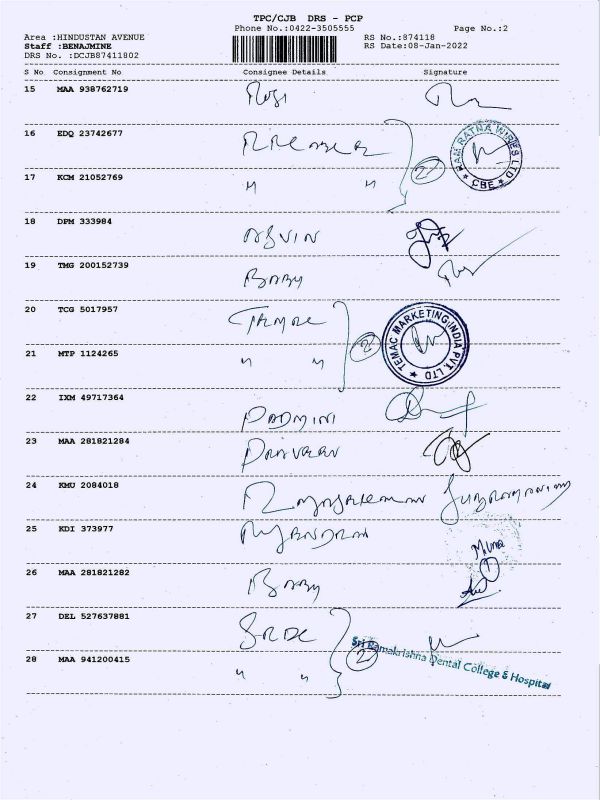 TPC/CJB DRS - PCP
Phone No.:0422-3505555 Page No.:2
Area :HINDUSTAN AVENUE RS No.:874118
Staff :BENAJMINE RS Date:08-Jan-2022
DRS No. :DCJB87411802
S No Consignment No Consignee Details Signature
15 MAA 938762719
16 EDQ 23742677
RAM RATNA WIRES LTD
CBE
17 KCM 21052769 " " 2
18 DPM 333984 ASVIN
19 TMG 200152739 BABY
20 TCG 5017957
TEMAC MARKETING INDIA PVT. LTD
21 MTP 1124265 " " 2
22 IXM 49717364 PADMINI
23 MAA 281821284
24 KMU 2084018
25 KDI 373977
26 MAA 281821282 BABY
27 DEL 527637881
Sri Ramakrishna Dental College & Hospital
28 MAA 941200415 " " 2